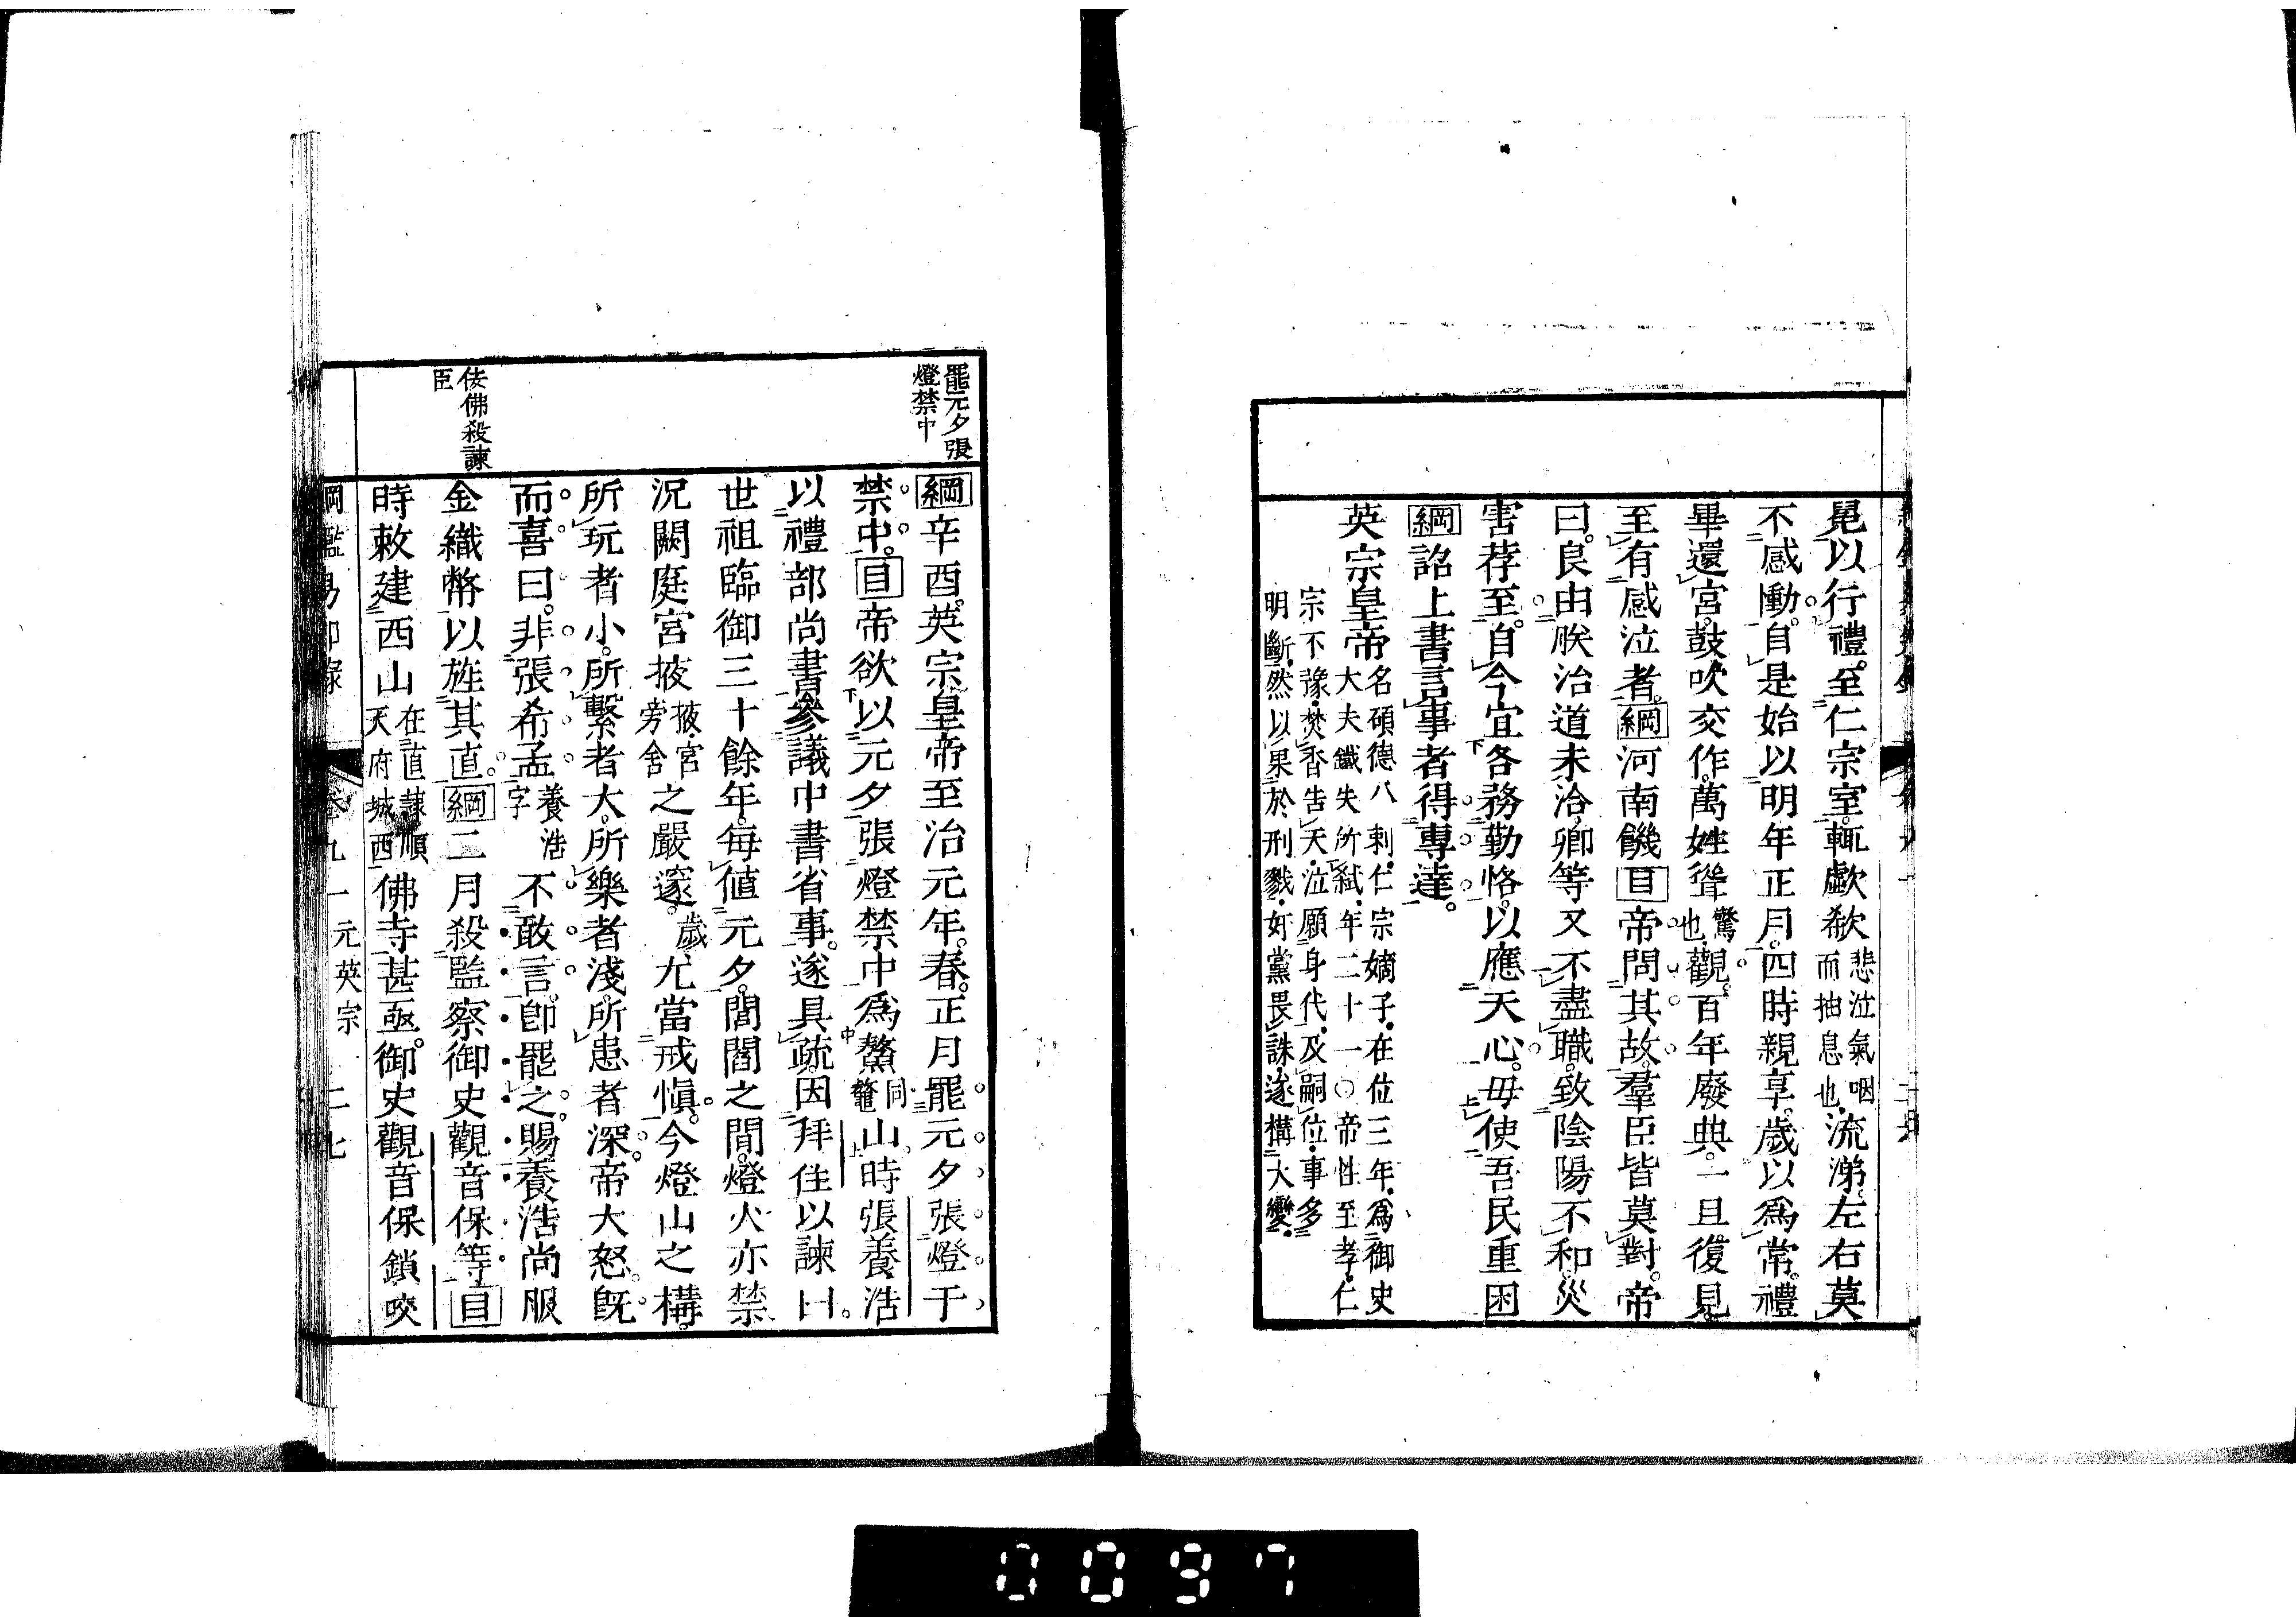 冕以行禮。至仁宗室。輒歔欷悲泣氣咽而抽息也。流涕。左右莫
不感慟。自是始以明年正月。四時親享。歲以爲常。禮
畢還宮。鼓吹交作。萬姓聳驚也。觀。百年廢典。一旦復見。
至有感泣者。綱河南饑目帝問其故。羣臣皆莫對。帝
曰。良由朕治道未洽。卿等又不盡職。致陰陽不和。災
害荐至。自今宜各務勤恪。以應天心。毋使吾民重困
綱詔上書言事者得專達。
英宗皇帝名碩德八剌。仁宗嫡子。在位三年。爲御史大夫鐵失所弑。年二十一〇帝性至孝。仁
宗不豫。焚香告天。泣願身代。及嗣位。事多明斷。然以果於刑戮。奸黨畏誅。遂構大變。
罷元夕張燈禁中
綱辛酉。英宗皇帝至治元年。春。正月罷元夕張燈于
禁中。目帝欲以元夕張燈禁中爲鰲同鼇山。時張養浩
以禮部尚書參議中書省事。遂具疏。因拜住以諫曰。
世祖臨御三十餘年。每値元夕。閭閻之間。燈火亦禁
況闕庭宮掖掖。宮旁舍之嚴邃。尤當戒愼。今燈山之構。
所玩者小。所繫者大。所樂者淺。所患者深。帝大怒。旣
而喜曰。非張希孟養浩字不敢言。卽罷之。賜養浩尚服
佞佛殺諫臣
金織幣以旌其直。綱二月殺監察御史觀音保等目
時敕建西山在直隷順天府城西佛寺甚亟。御史觀音保鎖咬
綱鑑易知錄 卷九一 元英宗 二七
0097